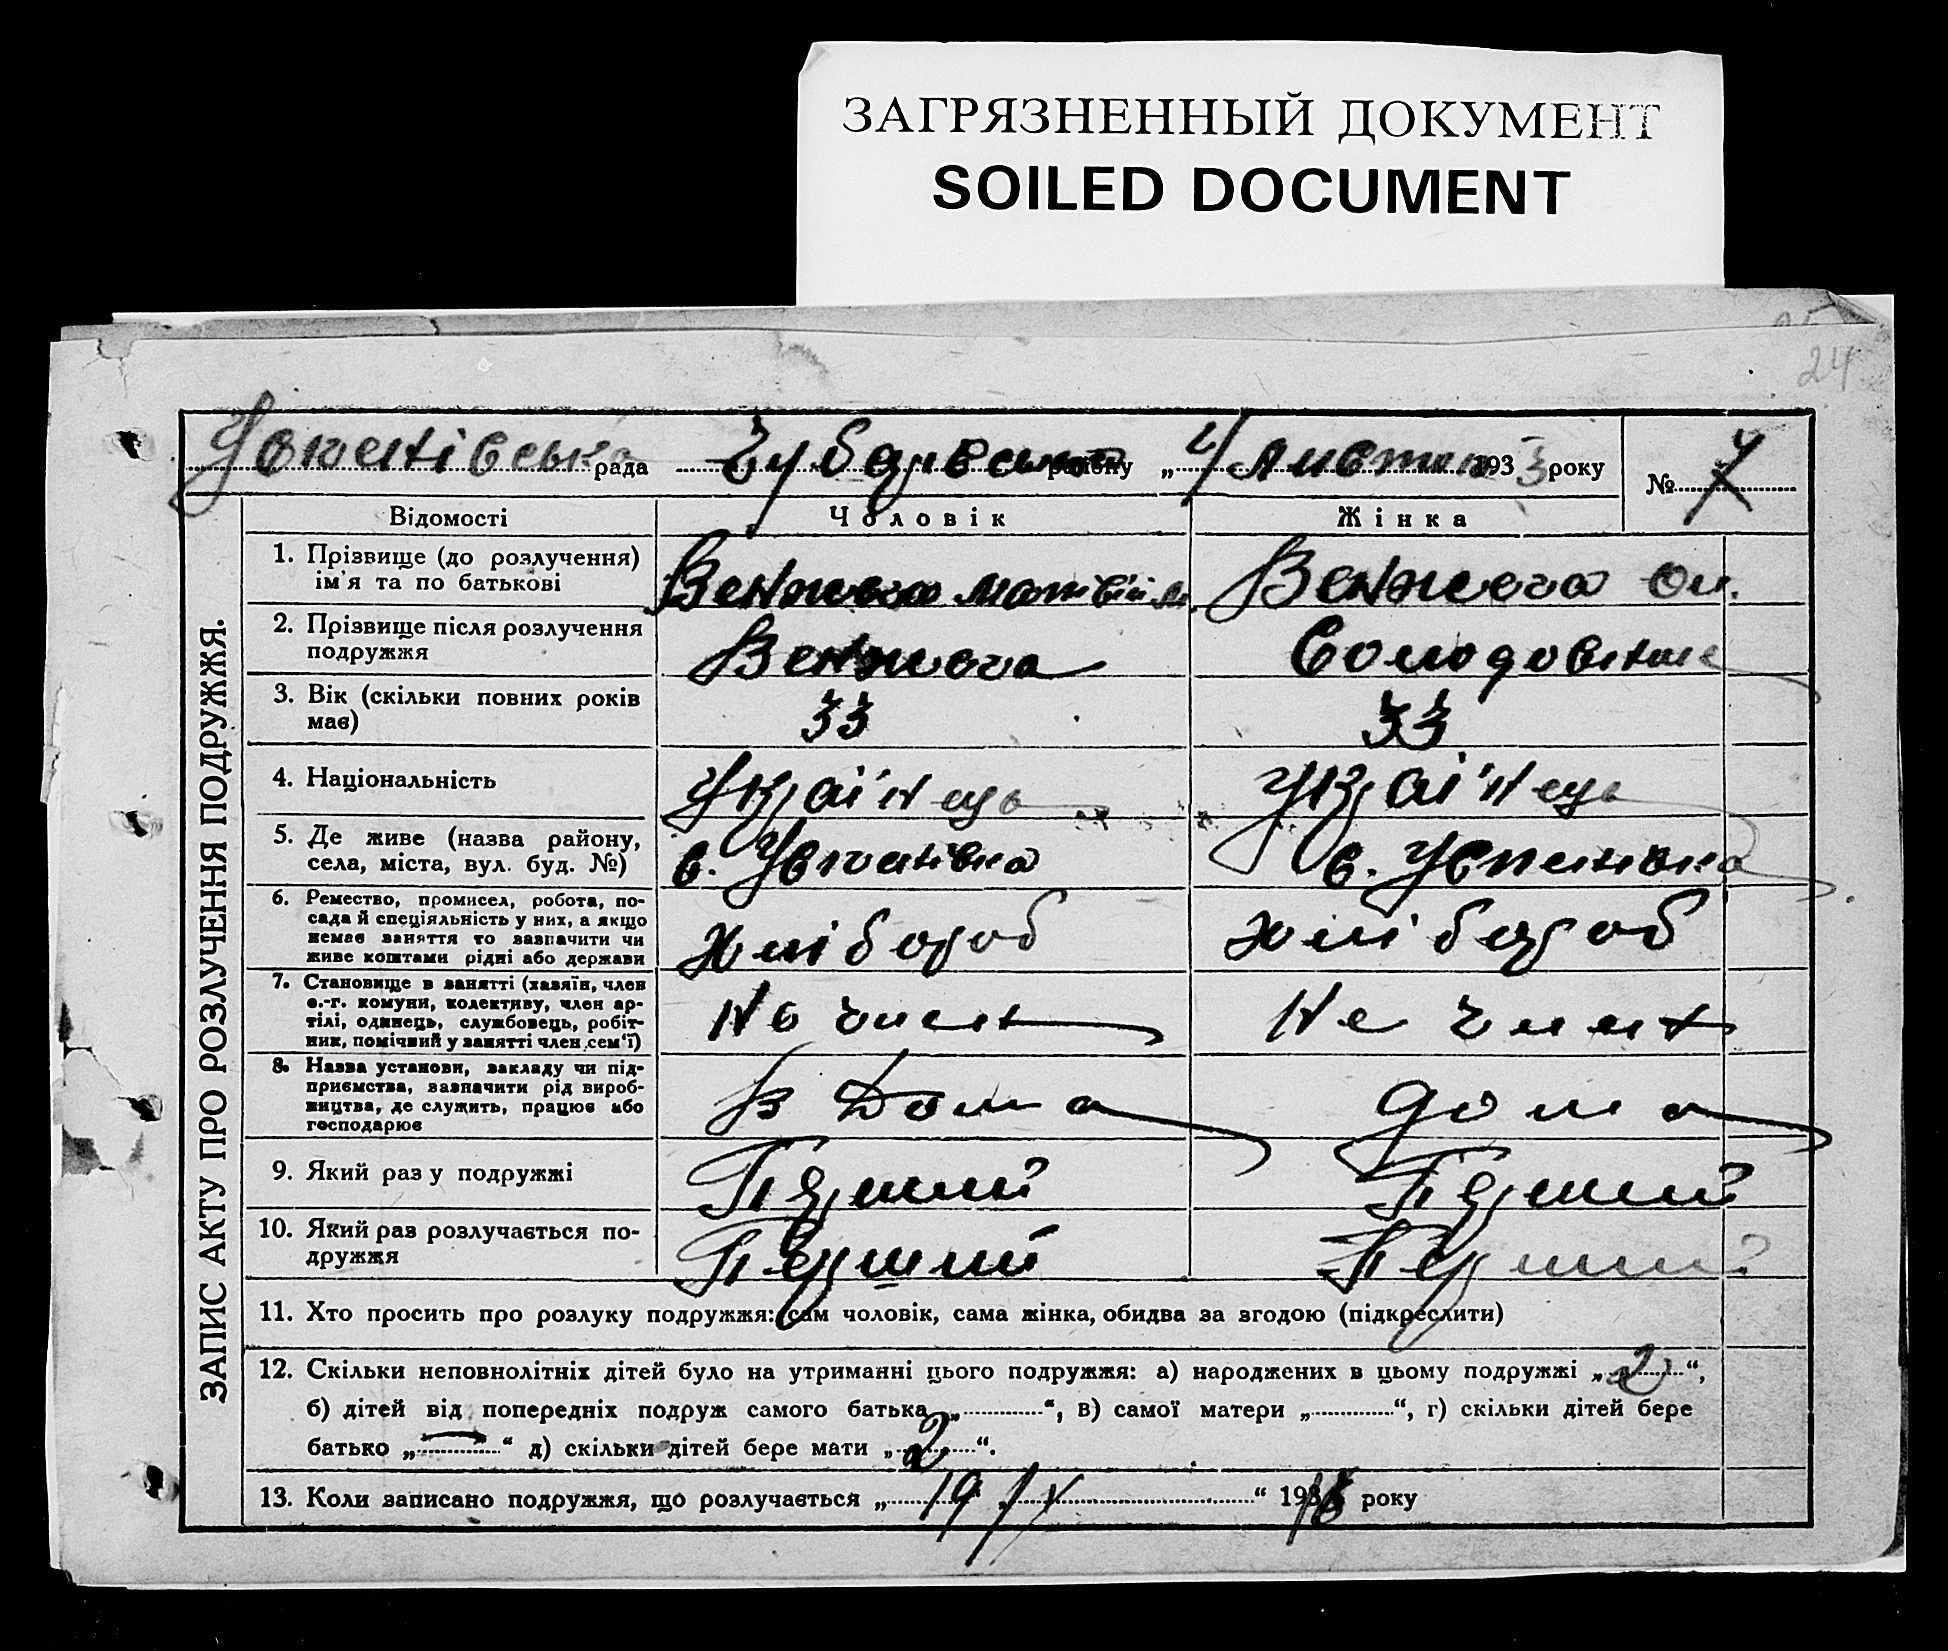 ЗАГРЯЗНЕННЫЙ ДОКУМЕНТ
SOILED DOCUMENT
24
рада району „4 листоп 1933 року № 7
ЗАПИС АКТУ ПРО РОЗЛУЧЕННЯ ПОДРУЖЖЯ.
Відомості Чоловік Жінка
1. Прізвище (до розлучення)
ім'я та по батькові
Матвій
2. Прізвище після розлучення
подружжя
3. Вік (скільки повних років
має)
33 33
4. Національність Украінець Украінець
5. Де живе (назва району,
села, міста, вул. буд. №)
с. Успенівка с. Успенівка
6. Ремество, промисел, робота, по-
сада й спеціяльність у них, а якщо
немає заняття то зазначити чи
живе коштами рідні або держави
хлібороб хлібороб
7. Становище в занятті (хазяїн, член
с.-г. комуни, колективу, член ар-
тілі, одинець, службовець, робіт-
ник, помічний у занятті член сем'ї)
Не член Не член
8. Назва установи, закладу чи під-
приємства, зазначити рід вироб-
ництва, де служить, працює або
господарює
В Дома дома
9. Який раз у подружжі Перший Перший
10. Який раз розлучається по-
дружжя
Перший Перший
11. Хто просить про розлуку подружжя: сам чоловік, сама жінка, обидва за згодою (підкреслити)
12. Скільки неповнолітніх дітей було на утриманні цього подружжя: а) народжених в цьому подружжі „2“,
б) дітей від попередніх подруж самого батька „“, в) самої матери „“, г) скільки дітей бере
батько „—“ д) скільки дітей бере мати „2“.
13. Коли записано подружжя, що розлучається „19 року